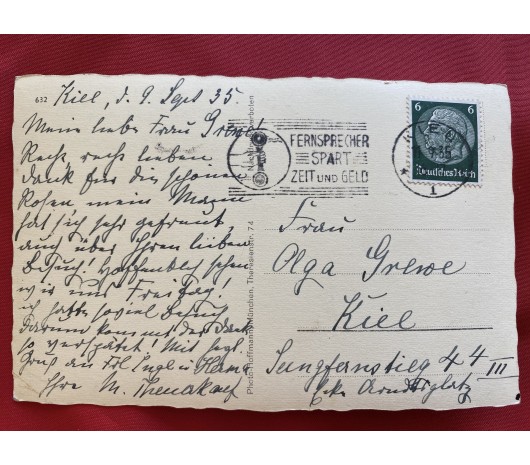 632
Kiel, d. 9. Sept 35.
Meine liebe Frau Grewe!
Recht, recht lieben
Dank für die schönen
Rosen mein Mann
hat sich sehr gefreut,
auch über Ihren lieben
Besuch! Hoffentlich sehen
wir uns Freitag!
ich hatte soviel Besuch
darum kommt der Dank
so verspätet! Mit
Gruß an Frl. Engel u.
Ihre M.
Photo-Hoffmann, München, Theresienstr. 74
FERNSPRECHER
SPART
ZEIT UND GELD
KIEL
1
6 6
Deutsches Reich
Frau
Olga Grewe
Kiel
Jungfernstieg 44 III
Ecke Arndtplatz